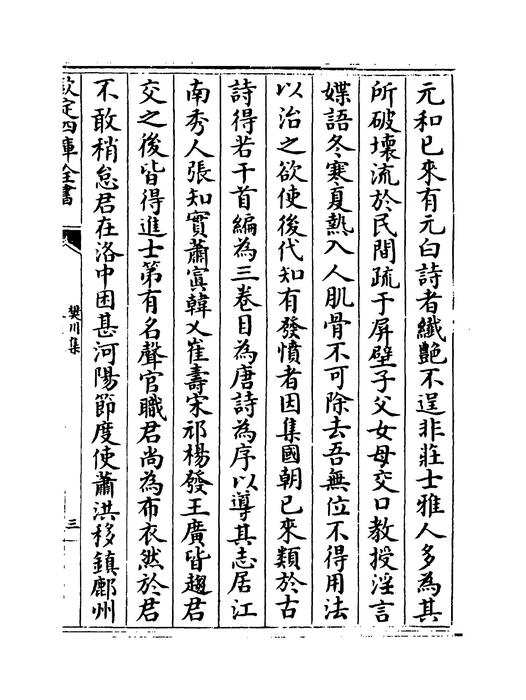 元和已來有元白詩者纖艷不逞非莊士雅人多為其
所破壞流於民間疏于屏壁子父女母交口教授淫言
媟語冬寒夏熱入人肌骨不可除去吾無位不得用法
以治之欲使後代知有發憤者因集國朝已來類於古
詩得若干首編為三卷目為唐詩為序以導其志居江
南秀人張知實蕭寘韓乂崔壽宋祁楊發王廣皆趨君
交之後皆得進士第有名聲官職君尚為布衣然於君
不敢稍怠君在洛中困甚河陽節度使蕭洪移鎮鄜州
欽定四庫全書
樊川集
三